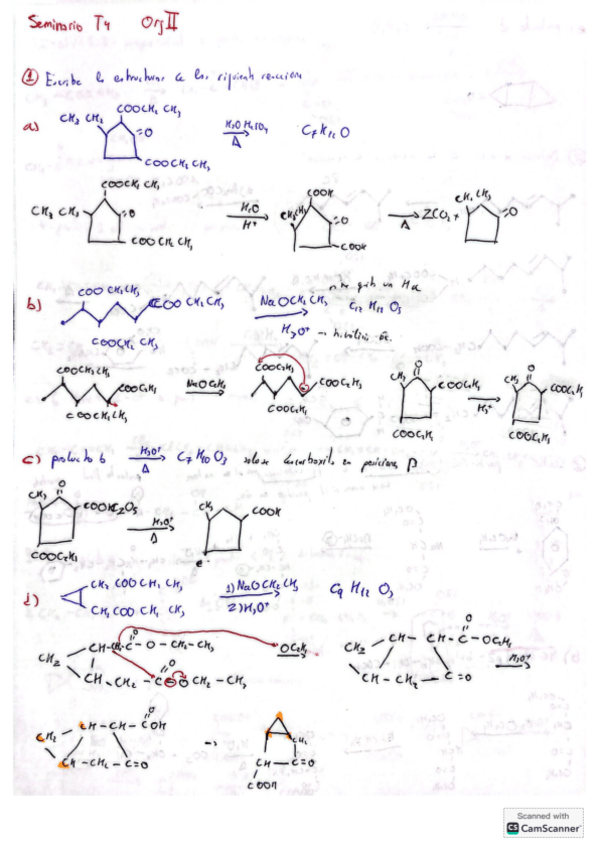 Seminario T4 Org II
① Escribe la estructuras de las siguiente reacciones
a) CH3 CH2 COOCH2 CH3 =O COOCH2 CH3 H2O H2SO4 Δ C7H12O
CH3 CH2 COOCH2 CH3 =O COOCH2 CH3 H2O H+ CH3CH2 COOH =O COOH Δ 2CO2 + CH2 CH3 =O
b) COOCH2CH3 COO CH2CH3 COOCH2 CH3 NaOCH2CH3 H3O+ C12 H18 O5
COOCH2CH3 COOC2H5 COOCH2CH3 NaOC2H5 COOC2H5 COOC2H5 COOC2H5 CH3 O COOC2H5 COOC2H5 H3+ CH3 O COOC2H5 COOC2H5
c) producto b H3O+ Δ C7H10O3 solo se descarboxila en posiciones β
CH3 O COOC2H5 COOC2H5 H3O+ Δ CH3 COOH
d) CH2 COO CH2 CH3 CH2 COO CH2 CH3 1) NaOCH2 CH3 2) H3O+ C9 H12 O3
CH2 CH-CH2-C-O-CH2-CH3 O CH-CH2-C-O CH2-CH3 O OC2H5 CH2 CH-CH-C-OC2H5 O CH-CH2-C=O H3O+
CH2 CH-CH-C-OH O CH-CH2-C=O → CH2 CH-C=O COOH
Scanned with
CS CamScanner